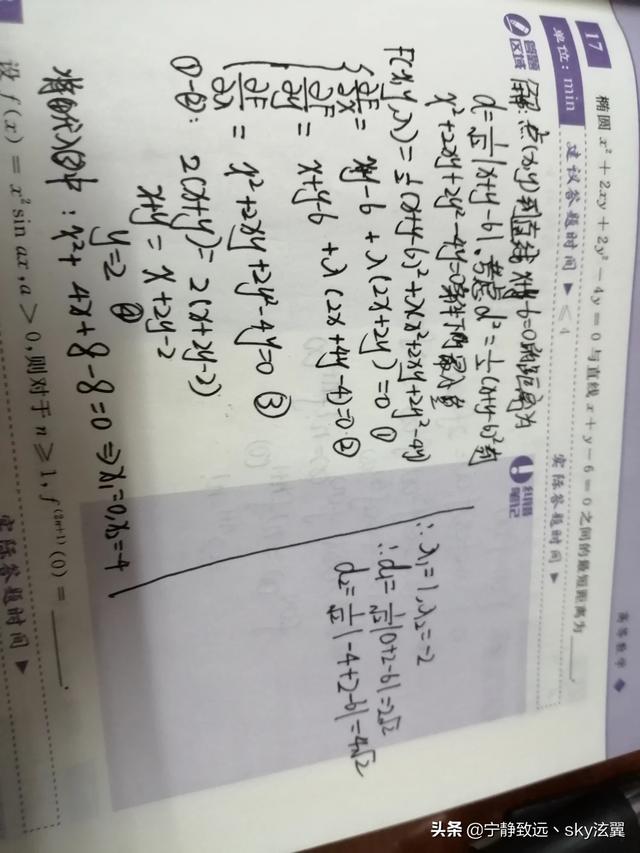 高等数学
17 椭圆 x² + 2xy + 2y² − 4y = 0 与直线 x + y − 6 = 0 之间的最短距离为____.
单位：min 建议答题时间 ▶ ≤ 4 实际答题时间 ▶
答题区域
解：点(x,y)到直线 x+y-6=0的距离为
d=1/√2|x+y-6|, 考虑d²=1/2(x+y-6)²在
x²+2xy+2y²-4y=0条件下的最小值
F(x,y,λ)=1/2(x+y-6)²+λ(x²+2xy+2y²-4y)
∂F/∂x = x+y-6+λ(2x+2y)=0 ①
∂F/∂y = x+y-6+λ(2x+4y-4)=0 ②
∂F/∂λ = x²+2xy+2y²-4y=0 ③
①-②: 2(x+y)=2(x+2y-2)
x+y = x+2y-2
y=2 ④
将④代入③中：x²+4x+8-8=0 ⇒x₁=0,x₂=-4
纠错笔记
∴λ₁=1,λ₂=-2
∴d₁=1/√2|0+2-6|=2√2
d₂=1/√2|-4+2-6|=4√2
设 f(x) = x² sin ax, a > 0, 则对于 n ≥ 1, f⁽²ⁿ⁺¹⁾(0) = ____.
实际答题时间 ▶
头条 @宁静致远丶sky泫翼